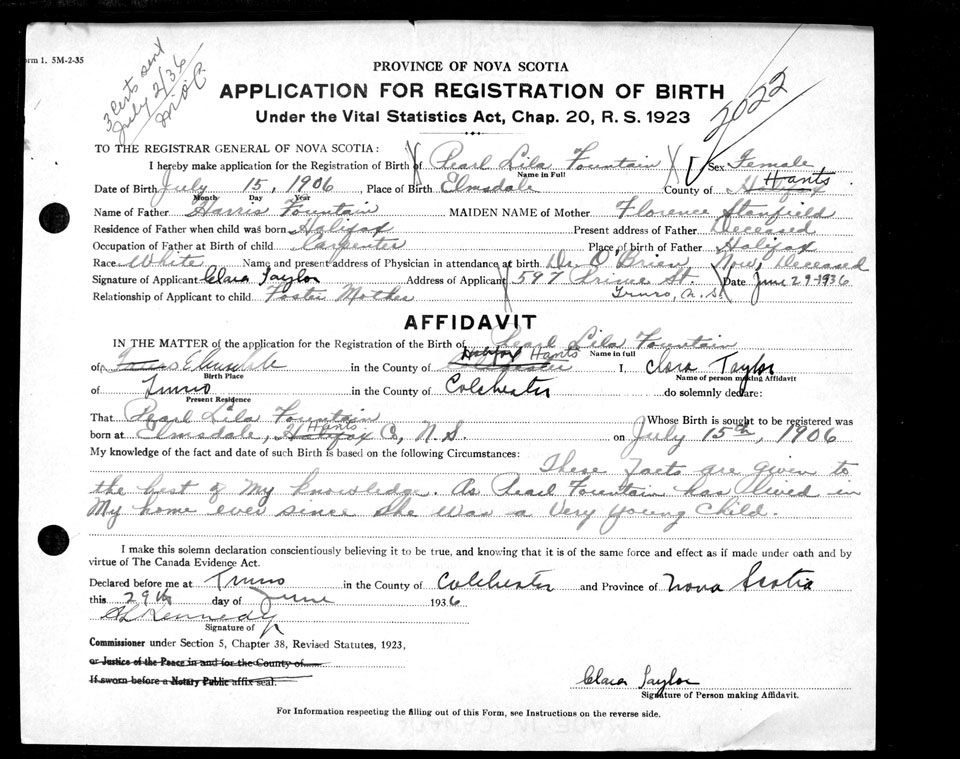 orm 1. 5M-2-35
3 Certs sent
July 2/36
PROVINCE OF NOVA SCOTIA
APPLICATION FOR REGISTRATION OF BIRTH
2022
Under the Vital Statistics Act, Chap. 20, R. S. 1923
TO THE REGISTRAR GENERAL OF NOVA SCOTIA:
I hereby make application for the Registration of Birth of Pearl Lila Fountain Sex Female
Name in Full
Hants
Date of Birth July 15, 1906, Place of Birth Elmsdale County of Halifax
Month Day Year
Name of Father Harris Fountain MAIDEN NAME of Mother Florence Stanfield
Residence of Father when child was born Halifax Present address of Father Deceased
Occupation of Father at Birth of child Carpenter Place of birth of Father Halifax
Race White Name and present address of Physician in attendance at birth Dr. O'Brien Now, Deceased
Signature of Applicant Clara Taylor Address of Applicant 597 Prince St. Date June 29-1936
Relationship of Applicant to child Foster Mother Truro, N.S.
AFFIDAVIT
IN THE MATTER of the application for the Registration of the Birth of Pearl Lila Fountain
Halifax Hants Name in full
of Truro Elmsdale in the County of Colchester I, Clara Taylor
Birth Place Name of person making Affidavit
of Truro in the County of Colchester do solemnly declare:
Present Residence
That Pearl Lila Fountain Whose Birth is sought to be registered was
Hants
born at Elmsdale, Halifax Co, N.S. on July 15th, 1906
My knowledge of the fact and date of such Birth is based on the following Circumstances:
These facts are given to
the best of My knowledge. As Pearl Fountain has lived in
My home ever since she was a Very Young Child.
I make this solemn declaration conscientiously believing it to be true, and knowing that it is of the same force and effect as if made under oath and by
virtue of The Canada Evidence Act.
Declared before me at Truro in the County of Colchester and Province of Nova Scotia
this 29th day of June 1936
Kennedy
Signature of
Commissioner under Section 5, Chapter 38, Revised Statutes, 1923,
or Justice of the Peace in and for the County of
If sworn before a Notary Public affix seal.
Clara Taylor
Signature of Person making Affidavit.
For Information respecting the filling out of this Form, see Instructions on the reverse side.